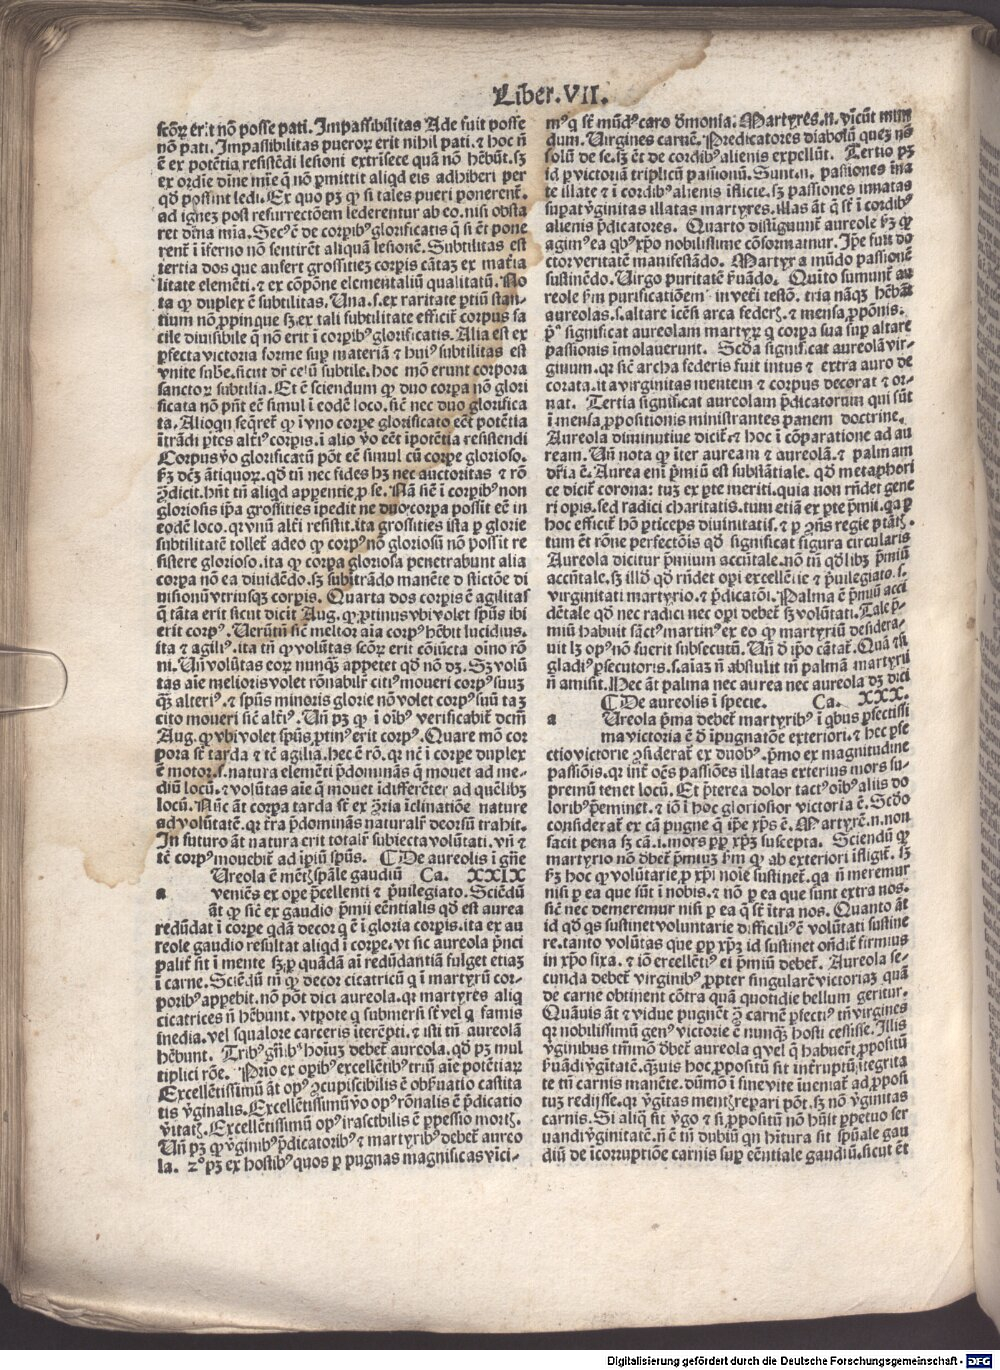 Liber.VII.
scōꝝ erit nō posse pati. Impassibilitas Ade fuit posse
nō pati. Impassibilitas pueroꝝ erit nihil pati. ⁊ hoc ñ
ē ex potētia resistēdi lesioni extrīsece quā nō hēbūt. sꝫ
ex ordīe dīne iustitie q̄ nō ꝑmittit aliqd eis adhiberi per
qd̄ possint ledi. Ex quo pꝫ ꝙ si tales pueri ponerent̄
ad ignez post resurrectōem lederentur ab eo. nisi obsta
ret dīna
rent̄ ī īferno nō sentirēt aliquā lesionē. Subtilitas est
tertia dos que aufert grossitiez corpis cātaꝫ ex materia
litate elemēti. ⁊ ex cōpōne elementaliū qualitatū. No
ta ꝙ duplex ē subtilitas. Una .s. ex raritate ptiū stan-
tium nō ꝓpinque sꝫ ex tali subtilitate efficit̄ corpus fa
cile diuisibile q̄ nō erit ī corpibꝰ glorificatis. Alia est ex
ꝑfecta victoria forme suꝑ materiā ⁊ huiꝰ subtilitas est
vnite sub̄e. sicut dr̄ celū subtile. hoc mō erunt corpora
sanctoꝝ subtilia. Et ē sciendum ꝙ duo corpa nō glori
ficata nō pn̄t eē simul ī eodē loco. sic̄ nec duo glorifica
ta. Alioqn seq̄ret̄ ꝙ ī vno corpe glorificato eēt potētia
ītrādi ptes alteriꝰ corpis. ī alio ꝟo eēt īpotētia resistendi
Corpus ꝟo glorificatū pōt eē simul cū corpe glorioso.
ẜm dcm̄ ātiquoꝝ. qd̄ tn̄ nec fides hꝫ nec auctoritas ⁊ rō
ꝯ̄dicit. hn̄t tn̄ aliqd apparentie ꝓ se. Nā sic̄ ī corpibꝰ non
gloriosis ip̄a grossities īpedit ne duo corpa possit eē in
eodē loco. qꝛ vnū alteri resistit. ita grossities ista ꝑ glorie
subtilitatē tollet̄ adeo ꝙ corpꝰ nō gloriosū nō possit re
sistere glorioso. ita ꝙ corpa gloriosa penetrabunt alia
corpa nō ea diuidēdo. sꝫ subitrādo manēte distictōe di
uisionū vtriusqꝫ corpis. Quarta dos corpis ē agilitas
q̄ tāta erit sicut dicit Aug. ꝙ ꝓtinus vbi volet spūs ibi
erit corpꝰ. Uerūtn̄ sic̄ melior aīa corpꝰ hēbit lucidius.
ita ⁊ agiliꝰ. ita tn̄ ꝙ volūtas scōꝝ erit cōiūcta oīno rō
ni. Un̄ volūtas eoꝝ nunqꝫ appetet qd̄ nō dꝫ. Sꝫ volū
tas aīe melioris volet rōnabilr̄ citiꝰ moueri corpꝰ suuꝫ
qꝫ̄ alteriꝰ. ⁊ spūs minoris glorie nō volet corpꝰ suū taꝫ
cito moueri sic̄ alteriꝰ. Un̄ pꝫ ꝙ ī oībꝰ verificabit̄ dcm̄
Aug. ꝙ vbi volet spūs ꝓtinꝰ erit corpꝰ. Quare mō cor
pora st̄ tarda ⁊ nō agilia. hec ē rō. qꝛ nc̄ ī corpe duplex
ē motor .s. natura elemēti p̄dominās q̄ mouet ad me-
diū locū. ⁊ volūtas aīe q̄ mouet īdifferēter ad quēlibꝫ
locū. Nūc āt corpa tarda st̄ ex ꝯ̄ria īclinatiōe nature
ad volūtatē. qꝛ tr̄a p̄dominās naturalr̄ deorsū trahit.
In futuro āt natura erit totalr̄ subiecta volūtati. vn̄ ⁊
tē corpꝰ mouebit̄ ad īpiū spūs. ℂ De aureolis ī gn̄e
Ureola ē mētꝭ spūale gaudiū Ca. XXIX
a veniēs ex oꝑe p̄cellenti ⁊ p̄uilegiato. Sciēdū
āt ꝙ sic̄ ex gaudio p̄mii eēntialis qd̄ est aurea
redūdat ī corpe qdā decor q ē ī gloria corpis. ita ex au
reole gaudio resultat aliqd ī corpe. vt sic aureola p̄nci
palit̄ sit ī mente sꝫ ꝑ quādā aīe redūdantiā fulget etiaꝫ
ī carne. Sciēdū tn̄ ꝙ decor cicatricū q̄ ī martyrū cor-
poribꝰ appebit. nō pōt dici aureola. qꝛ martyres aliq̄
cicatrices ñ hēbunt. vtpote q submersi st̄ vel q̄ famis
inedia. vel squalore carceris īterēpti. ⁊ isti tn̄ aureolā
hēbunt. Tribꝰ gn̄ibꝰ hoīuꝫ debet̄ aureola. qd̄ pꝫ mul
tiplici rōe. Prīo ex opibꝰ excellētibꝰ triū aīe potētiaꝝ
Excellētissimū āt opꝰ ꝯcupiscibilis ē obẜuatio castita
tis ꝟginalis. Excellētissimū ꝟo opꝰ rōnalis ē p̄dicatio
ꝟitatꝭ. Excellētissimū opꝰ irascibilis ē ꝑpessio mortꝭ.
Un̄ pꝫ ꝙ ꝟginibꝰ p̄dicatoribꝰ ⁊ martyribꝰ debet̄ aureo
la. 2o pꝫ ex hostibꝰ quos ꝑ pugnas magnificas vici-
mꝰ q st̄ mūdꝰ caro demonia. Martyres .n. vicūt mun
dum. Uirgines carnē. Predicatores diabolū queꝫ nō
solū de se. sꝫ ēt de cordibꝰ alienis expellūt. Tertio pꝫ
id ꝑ victoriā triplicū passionū. Sunt .n. passiones īna
te illate ⁊ ī cordibꝰ alienis īflicte. sꝫ passiones innatas
supat ꝟginitas illatas martyres. illas āt q̄ st̄ ī cordibꝰ
alienis p̄dicatores. Quarto distīguunt̄ aureole ẜm ꝙ
agimꝰ ea qbꝰ xp̄o nobilissime cōformamur. Ip̄e fuit do
ctor veritatē manifestādo. Martyr a mūdo passionē
sustinēdo. Uirgo puritatē ẜuādo. Quīto sumunt̄ au
reole ẜm purificatiōem in veteri testō. tria nāqꝫ hēbāt
aureolas .s. altare īcēsi arca federꝭ. ⁊ mensa ꝓpōnis.
pꝰ significat aureolam martyꝝ q̄ corpa sua suꝑ altare
passionis īmolauerunt. Scd̄a significat aureolā vir-
ginum. qꝛ sic̄ archa federis fuit intus ⁊ extra auro de
corata. ita virginitas mentem ⁊ corpus decorat ⁊ or-
nat. Tertia significat aureolam p̄dicatorum qui sūt
ī mensa ꝓpositionis ministrantes panem doctrine.
Aureola diminutiue dicit̄. ⁊ hoc ī cōparatione ad au
ream. Un̄ nota ꝙ īter auream ⁊ aureolā. ⁊ palmam
dr̄ia ē. Aurea eni p̄miū est substātiale. qd̄ metaphori
ce dicit̄ corona: tuꝫ ex pte meriti. quia non rn̄det gene
ri opis. sed radici charitatis. tum etiā ex pte p̄mii. qa ꝑ
hoc efficit̄ hō pticeps diuinitatis. ⁊ ꝑ ꝯn̄s regie ptātꝭ.
tum ēt rōne perfectōis qd̄ significat figura circularis
Aureola dicitur p̄mium accn̄tale. nō tn̄ qd̄libꝫ p̄miū
accn̄tale. sꝫ illd̄ qd̄ rn̄det opi excellētie ⁊ p̄uilegiato .s.
virginitati martyrio. ⁊ p̄dicatōi. Palma ē p̄miū acci
dētale qd̄ nec radici nec opi debet̄ sꝫ volūtati. Tale p̄-
miū habuit sāctꝰ martinꝰ ex eo ꝙ martyriū desidera-
uit lꝫ opꝰ nō fuerit subsecutū. Un̄ d̄ ip̄o cātat̄. Quā ⁊si
gladiꝰ ꝑsecutoris .s. aīaꝫ ñ abstulit tn̄ palmā martyrii
ñ amisit. Nec āt palma nec aurea nec aureola dꝫ dici
ℂ De aureolis ī specie. Ca. XXX.
a Ureola p̄ma debet̄ martyribꝰ ī qbus ꝑfectissi
ma victoria ē d̄ īpugnatōe exteriori. ⁊ hec ꝑfe
ctio victorie ꝯsiderat̄ ex duobꝰ. p̄mo ex magnitudine
passiōis. qꝛ int̄ oēs passiōes illatas exterius mors su-
premū tenet locū. Et p̄terea dolor tactꝰ oībꝰ aliis do
loribꝰ p̄eminet. ⁊ iō ī hoc gloriosior victoria ē. Scd̄o
considerat̄ ex cā pugne q̄ ip̄e xp̄s ē. Martyrē .n. non
facit pena sꝫ cā .i. mors ꝓpter xp̄ꝫ suscepta. Sciendū ꝙ
martyrio nō dēbet̄ p̄miuꝫ ẜm ꝙ ab exteriori īfligit̄. sꝫ
ẜm hoc ꝙ volūtarie ꝓpter xp̄i noīe sustinet̄. qa ñ meremur
nisi ꝑ ea que sūt ī nobis. ⁊ nō ꝑ ea que sunt extra nos.
sic̄ nec demeremur nisi ꝑ ea q̄ st̄ ītra nos. Quanto āt
id qd̄ qs sustinet voluntarie difficiliꝰ ē volūtati sustine
re. tanto volūtas que ꝓpter xp̄ꝫ id sustinet on̄dit̄ firmius
in xp̄o fixa. ⁊ iō excellētiꝰ ei p̄miū debet̄. Aureola se-
cunda debet̄ virginibꝰ ꝓpter singularē victoriaꝫ quā
de carne obtinent cōtra quā quotidie bellum geritur.
Quāuis āt ⁊ vidue pugnēt ꝯ̄ carnē ꝑfectiꝰ tn̄ virgines
qꝛ nobilissimū genꝰ victorie ē nunqꝫ hosti cessisse. Illis
ꝟginibus tn̄mō dēbet̄ aureola q̄ vel q̄ habuerit ꝓpositū
ẜuādi ꝟgītatē. qꝫuis hoc ꝓpositū sit intruptū itegrita
te tn̄ carnis manēte. dūmō ī fine vite īueniat̄ ad ꝓposi
tuꝫ redijsse. qꝛ ꝟgītas mentꝭ repari pōt. sꝫ nō ꝟginitas
carnis. Si aliq̄ sit ꝟgo ⁊ si ꝓpositū nō hūit ꝑpetuo ser
uandi ꝟginitatē. ñ ē tn̄ dubiū qn hītura sit spūale gau
diū de īcorruptiōe carnis suꝑ eēntiale gaudiū. sicut ēt
Digitalisierung gefördert durch die Deutsche Forschungsgemeinschaft - DFG